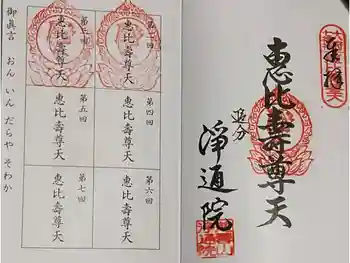 奉拝
恵比壽尊天
追分
淨通院
第二回
恵比壽尊天
第三回
恵比壽尊天
第四回
恵比壽尊天
第五回
恵比壽尊天
第六回
恵比壽尊天
第七回
恵比壽尊天
御眞言 おん いん だらや そわか